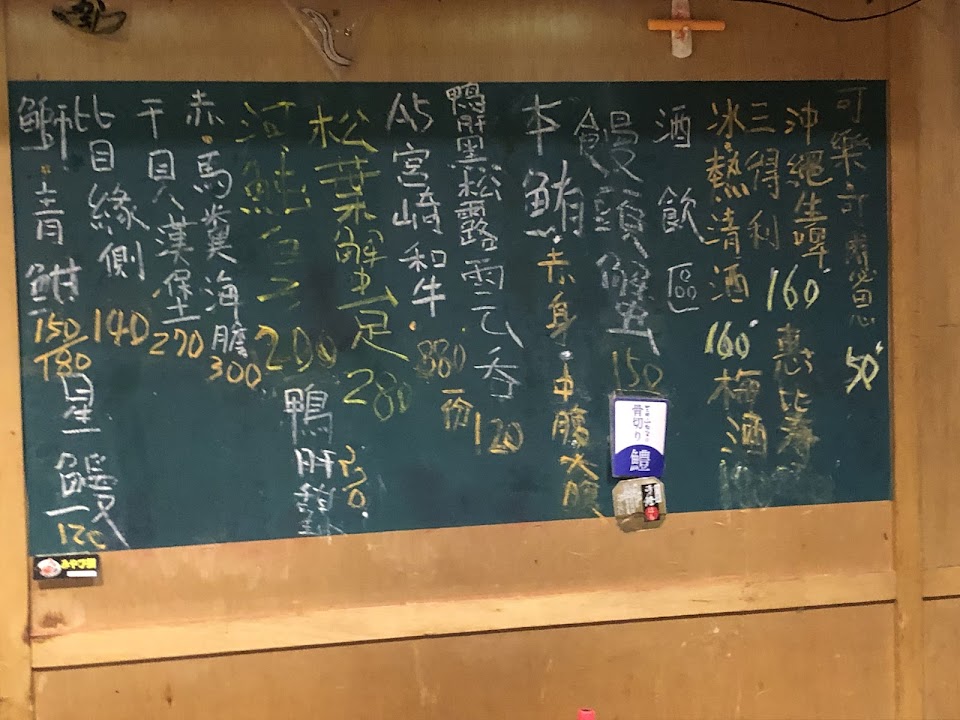 可樂 50
沖繩生啤 160
惠比壽
三得利
冰.熱清酒 160
梅酒
酒飲區
饅頭蟹 150
本鮪.赤身.中腹.大腹
鴨肝黑松露雲吞 120
A5宮崎和牛.880一份
松葉蟹足 280
河魨白子 200
鴨肝
赤.馬糞海膽 300
干貝漢堡 270
比目緣側 140
鰤.青魽 150/180
星鰻 120
骨切り鱧